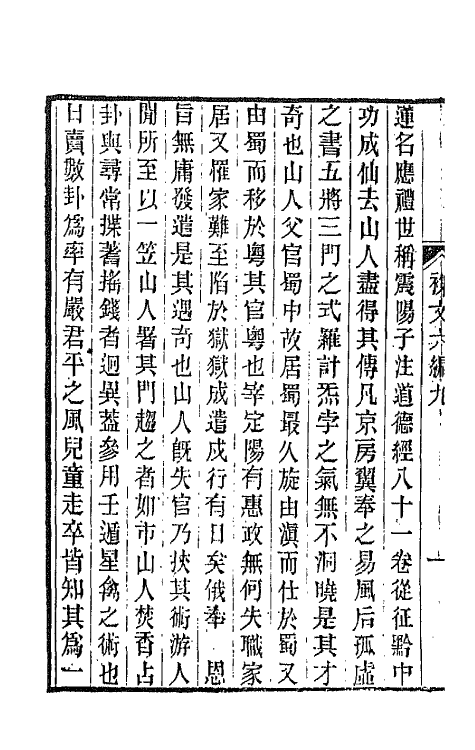 襍文六編九
一
蓮名應禮世稱震陽子注道德經八十一卷從征黔中
功成仙去山人盡得其傳凡京房翼奉之易風后孤虛
之書五將三門之式羅計炁孛之氣無不洞曉是其才
奇也山人父官蜀中故居蜀最久旋由滇而仕於蜀又
由蜀而移於粵其官粵也宰定陽有惠政無何失職家
居又罹家難至陷於獄獄成遣戍行有日矣俄奉　恩
旨無庸發遣是其遇奇也山人旣失官乃挾其術游人
閒所至以一笠山人署其門趨之者如市山人焚香占
卦與尋常揲蓍搖錢者迥異蓋參用壬遁星禽之術也
日賣數卦爲率有嚴君平之風兒童走卒皆知其爲一